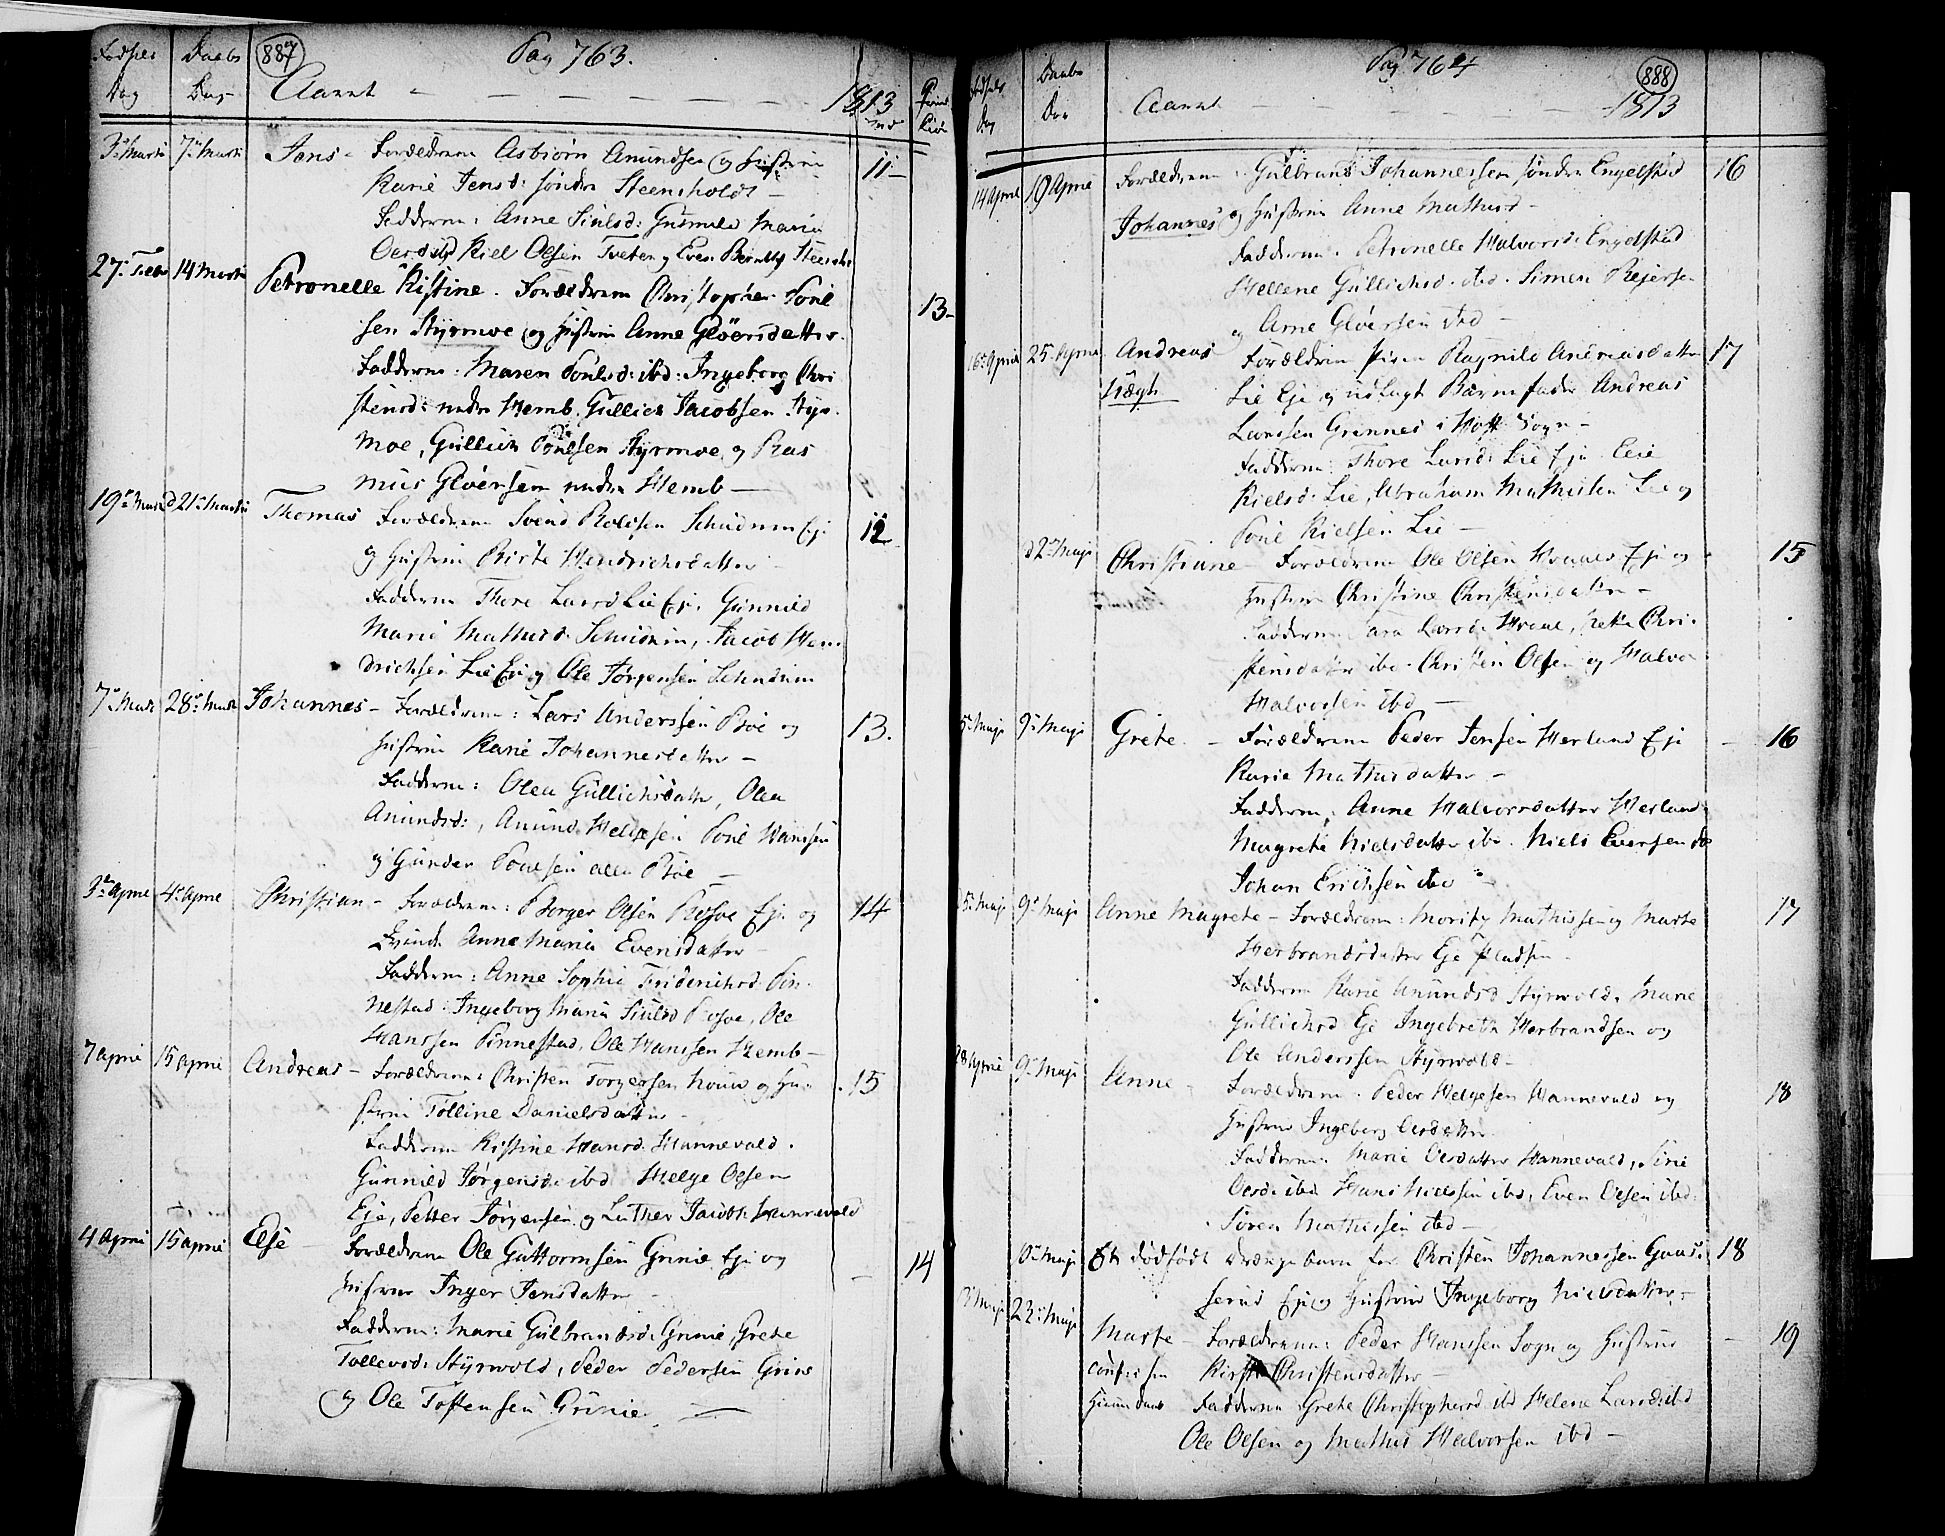 Fødsels Daabs 887 Pag 763.
Dag Dag Aaret - - - - 1813
3. Marti 7. Marti Jens - Forældrene Asbiørn Amundsen og Hustrue 11 -
Karie Jensd: søndre Steensholdt -
Fadderne: Anne Siulsd: Gunnild Maria
Olesen Tveten og Even
27. Febr 14 Marti Petronelle Kistine. Forældrene Christopher Poul
sen Styrmoe og Hustrue Anne Gløersdatter. 13 -
Fadderne: Maren Poulsd: ibd: Ingeborg Chri
stensd: nedre Hemb, Gullich Jacobsen Styr
moe, Gullich Poulsen Styrmoe, og Ras
mus Gløersen nedre Hemb -
19. Marti d 21. Marti Thomas Forældrene Svend Rolfsen Eje 12
og Hustrue Birte Hendrichsdatter
Fadderne Thore Larsd Lie Eje, Gunnild
Marie Mathisd: Jacob Hen
drichsen Lie Eje og Ole Jørgensen
7. Marti 28. Marti Johannes - Forældrene: Lars Anderssen Bøe og 13.
Hustrue Karie Johannesdatter -
Fadderne: Olea Gullichsdatter, Olea
Amundsd:, Amund Helgesen Poul Hanssen
og Gunder Poulsen alle Bøe -
3. April 4. April Christian - Forældrene: Borger Olsen Eje og 14
Qvinde Anne Maria Evensdatter -
Fadderne: Anne Sophie Friderichsd: Pin
nestad: Ingeborg Maria Siulsd Ole
Hanssen Pinnestad, Ole Hanssen Hemb -
7 April 15 April Andreas - Forældrene: Christen Torgersen og Hu- 15
strue Tolline Danielsdatter -
Fadderne Kistine Hansd: Hannevold.
Gunnild Jørgensd: ibd Helge Olsen
Eje, Petter Jørgensen og Luther Jacobs: Hannevold
4 April 15 April Else - Forældrene Ole Guttormsen Grinie Eje og - 14
Hustrue Inger Jensdatter -
Fadderne: Marie Gulbrandsd: Grinie, Grete
Tollevsd: Styrvold, Peder Pedersen Grinie
og Ole Toftensen Grinie. -
Fødsels Daabs Pag 764 888
Dag Dag Aaret - - - - 1813
14 April 19 April Forældrene: Gulbrand Johannessen søndre Engelstad 16
Johannes og Hustrue Anne Mathisd -
Fadderne. Petronelle Halvorsd: Engelstad
Hellene Gullichsd. ibd. Simen Rejersen
og Arne Gløersen ibd -
16. April 25. April Andreas Forældrene Pigen Ragnild Andreasdatter 17
Uægte Lie Eje og udlagt Barnefader Andreas
Larssen Grennes i Hoff Sogn -
Fadderne: Thore Larsd: Lie Eje
Kielsd: Lie, Abraham Mathissen Lie og
Poul Kielsen Lie -
d 2. Maji Christiane - Forældrene Ole Olsen Eje og 15
Hustrue Christine Christensdatter -
Fadderne Sara Larsd: Chri
stensdatter ibd. Christen Olsen og Halvor
Halvorsen ibd -
5. Maji 9. Maji Grete. - Forældrene Peder Jensen Herland Eje - 16
Karie Mathisdatter -
Fadderne: Anne Halvorsdatter Herland
Magrete Nielsdatter ibd. Niels Eversen do
Johan Erichsen ibd -
5. Maji 9. Maji Anne Magrete - Forældrene: Moritz Mathissen og Marte 17
Herbrandsdatter Eje Pladsen -
Fadderne Karie Amundsd Styrvold. Marie
Gullichsd Eje Ingebreth Herbrandsen og
Ole Anderssen Styrvold -
28 April 9. Maji Anne - Forældrene. Peder Helgesen Hannevold og 18
Hustrue Ingeborg Olesdatter
Fadderne: Marie Olesdatter Hannevold, Sirie
Olesd: ibd Hans Nielssen ibd, Even Olsen ibd:
Søren Mathissen ibd -
Maji Et dødfødt Drenge barn for Christen Johannessen 18
Eje og Hustrue Ingeborg Nielsdatter -
Maji 23. Maji Marte - Forældrene: Peder Hanssen Sogn og Hustrue - 19
Christensdatter -
Fadderne Grete Christophersd ibd Helena Larsd: ibd
Ole Olsen og Mathis Halvorsen ibd -